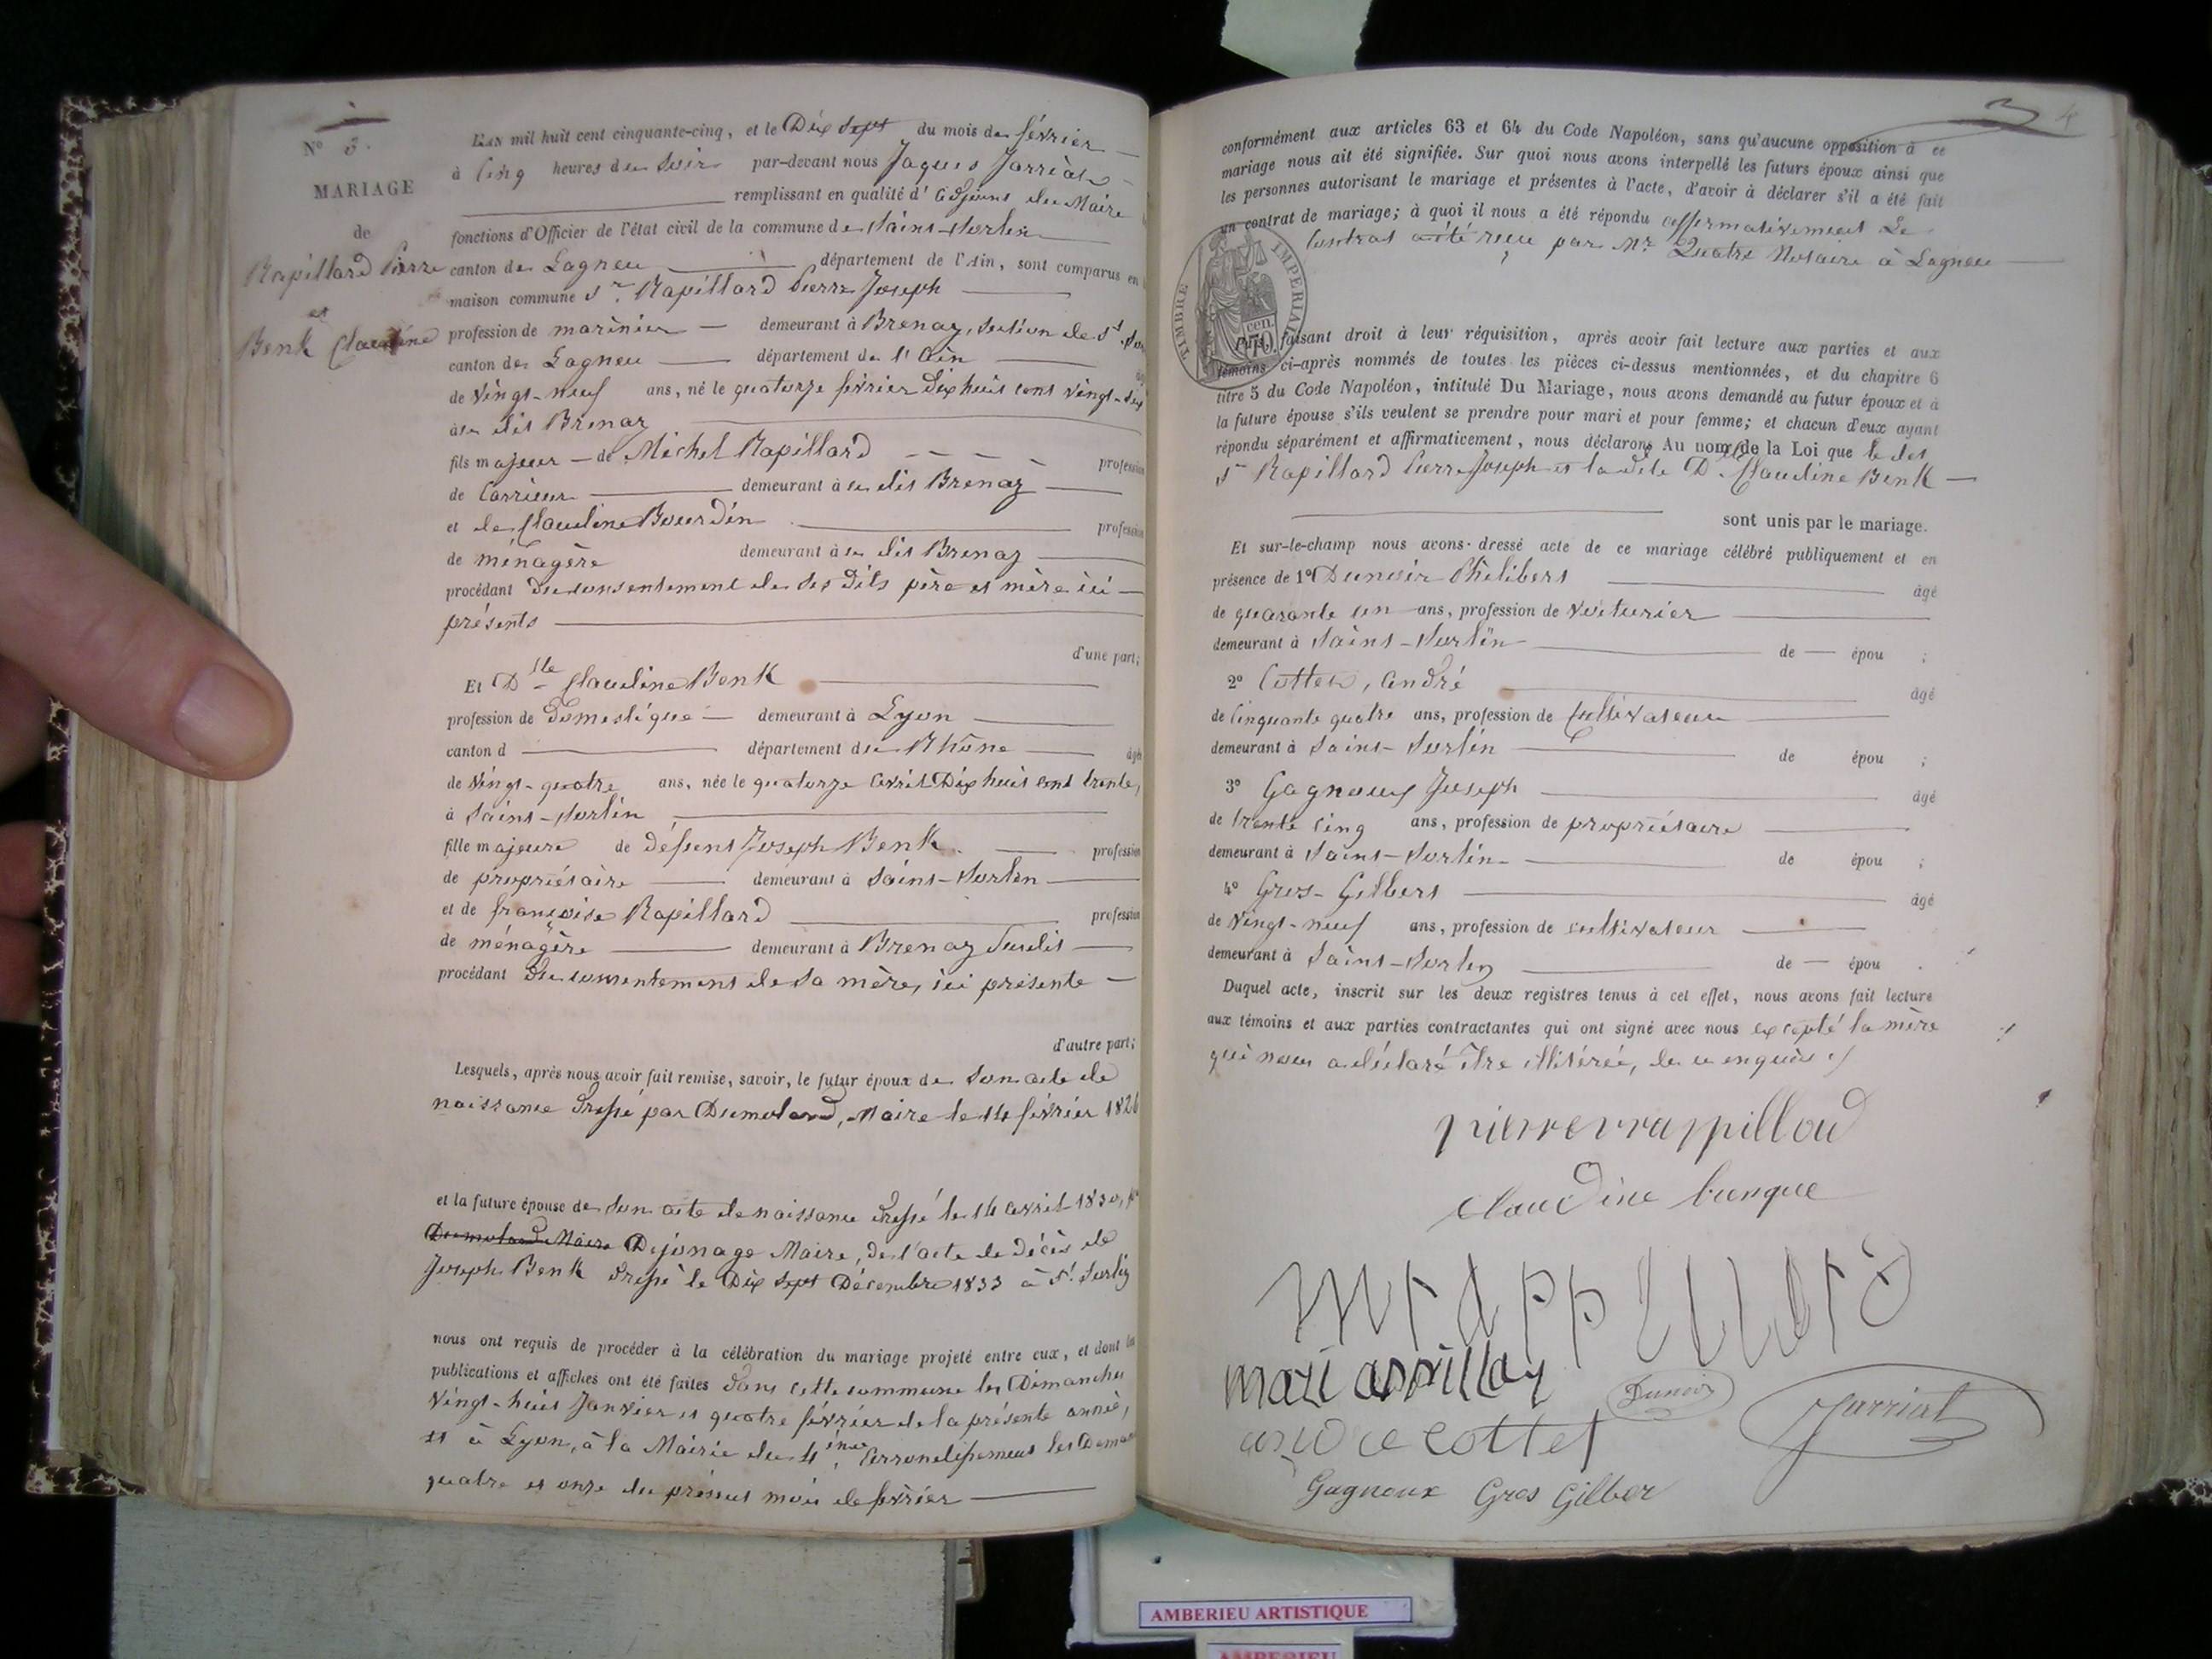 N° 3.
MARIAGE
de
Rapillard Pierre
et
Benk Claudine
L'AN mil huit cent cinquante-cinq, et le Dix sept du mois de février
à Cinq heures du Soir par-devant nous Jaques Jarriat
remplissant en qualité d'adjoint du Maire
fonctions d'Officier de l'état civil de la commune de Saint-Sorlin
canton de Lagneu département de l'Ain, sont comparus en
maison commune Sr. Rapillard Pierre Joseph
profession de marinier demeurant à Brenaz, Section de St Sor
canton de Lagneu département de l'Ain
de Vingt-neuf ans, né le quatorze février Dix huit cent vingt-six
à dit Brenaz
fils majeur de Michel Rapillard profession
de Carrieur demeurant à dit Brenaz
et de Claudine Bourdin profession
de ménagère demeurant à dit Brenaz
procédant du consentement de ses dits père et mère ici
présents
d'une part;
Et Dlle Claudine Benk
profession de Domestique demeurant à Lyon
canton d département du Rhône âgée
de Vingt-quatre ans, née le quatorze avril Dix huit cent trente,
à Saint-Sorlin
fille majeure de défunt Joseph Benk profession
de propriétaire demeurant à Saint-Sorlin
et de françoise Rapillard profession
de ménagère demeurant à Brenaz Susdit
procédant du consentement de sa mère, ici présente
d'autre part;
Lesquels, après nous avoir fait remise, savoir, le futur époux de son acte de
naissance Dressé par Dumolard, Maire le 14 février 1826
et la future épouse de son acte de naissance dressé le 14 avril 1830, par
Dumolard Maire Dejonage Maire, de l'acte de décès de
Joseph Benk dressé le Dix sept Décembre 1833 à St. Sorlin
nous ont requis de procéder à la célébration du mariage projeté entre eux, et dont les
publications et affiches ont été faites dans cette commune les Dimanches
Vingt-huit Janvier et quatre février de la présente année,
et à Lyon, à la Mairie du 4ème arrondissement les Diman
quatre et onze du présent mois de février
conformément aux articles 63 et 64 du Code Napoléon, sans qu'aucune opposition à ce
mariage nous ait été signifiée. Sur quoi nous avons interpellé les futurs époux ainsi que
les personnes autorisant le mariage et présentes à l'acte, d'avoir à déclarer s'il a été fait
un contrat de mariage; à quoi il nous a été répondu affirmativement Le
Contrat a été reçu par Mr. Quatre Notaire à Lagneu
TIMBRE IMPERIAL
70 cen.
faisant droit à leur réquisition, après avoir fait lecture aux parties et aux
témoins ci-après nommés de toutes les pièces ci-dessus mentionnées, et du chapitre 6
titre 5 du Code Napoléon, intitulé Du Mariage, nous avons demandé au futur époux et à
la future épouse s'ils veulent se prendre pour mari et pour femme; et chacun d'eux ayant
répondu séparément et affirmativement, nous déclarons Au nom de la Loi que le dit
Sr Rapillard Pierre Joseph et la dite Dlle Claudine Benk
sont unis par le mariage.
Et sur-le-champ nous avons dressé acte de ce mariage célébré publiquement et en
présence de 1° Dunoir Philibert âgé
de quarante un ans, profession de Voiturier
demeurant à Saint-Sorlin de épou ;
2° Cottet, André âgé
de Cinquante quatre ans, profession de Cultivateur
demeurant à Saint-Sorlin de épou ;
3° Gagneux Joseph âgé
de trente Cinq ans, profession de propriétaire
demeurant à Saint-Sorlin de épou ;
4° Gros-Gilbert âgé
de Vingt-neuf ans, profession de cultivateur
demeurant à Saint-Sorlin de épou .
Duquel acte, inscrit sur les deux registres tenus à cet effet, nous avons fait lecture
aux témoins et aux parties contractantes qui ont signé avec nous excepté la mère
qui nous a déclaré être illitérée, de ce enquis
pierre rappillard
claudine bunque
m rappillard
andré cottet
Dunoir
Jarriat
Gagneux Gros Gilber
AMBERIEU ARTISTIQUE
AMBERIEU